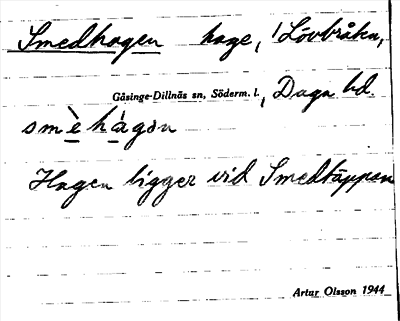 Smedhagen hage, 1 Lövbråten,
Gåsinge-Dillnäs sn, Söderm. l., Daga hd.
smè̱ há̱gən
Hagen ligger vid Smedtäppan
Artur Olsson 1944